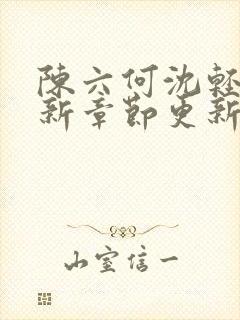 陳六何沈輕
新章節更新
山室信一